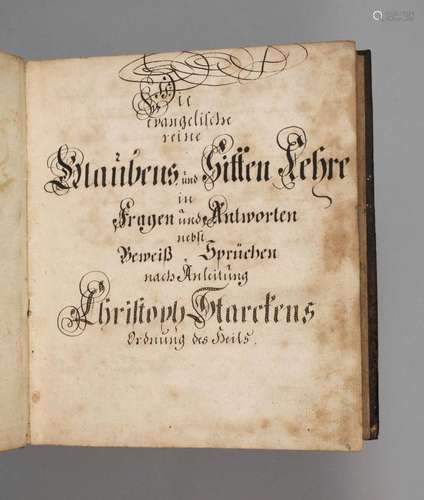 Die
evangelische
reine
Glaubens und Sitten Lehre
in
Fragen und Antworten
nebst
Beweiß Sprüchen
nach Anleitung
Christoph Starckens
Ordnung des Heils.